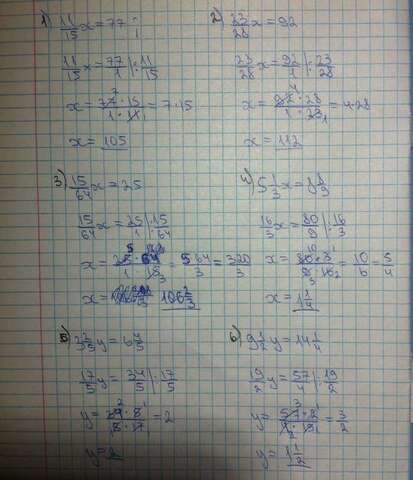 1) 11/15 x = 77
11/15 x = 77/1 |: 11/15
x = 77 · 15 / 1 · 11 = 7 · 15
x = 105
2) 23/28 x = 92
23/28 x = 92/1 |: 23/28
x = 92 · 28 / 1 · 23 = 4 · 28
x = 112
3) 15/64 x = 25
15/64 x = 25/1 |: 15/64
x = 25 · 64 / 1 · 15 = 5 64/3 = 320/3
x = 106 2/3
4) 5 1/3 x = 8 8/9
16/3 x = 80/9 |: 16/3
x = 80 · 3 / 9 · 16 = 10/6 = 5/4
x = 1 1/4
5) 3 2/5 y = 6 4/5
17/5 y = 34/5 |: 17/5
y = 34 · 5 / 5 · 17 = 2
y = 2
6) 9 1/2 y = 14 1/4
19/2 y = 57/4 |: 19/2
y = 57 · 2 / 4 · 19 = 3/2
y = 1 1/2